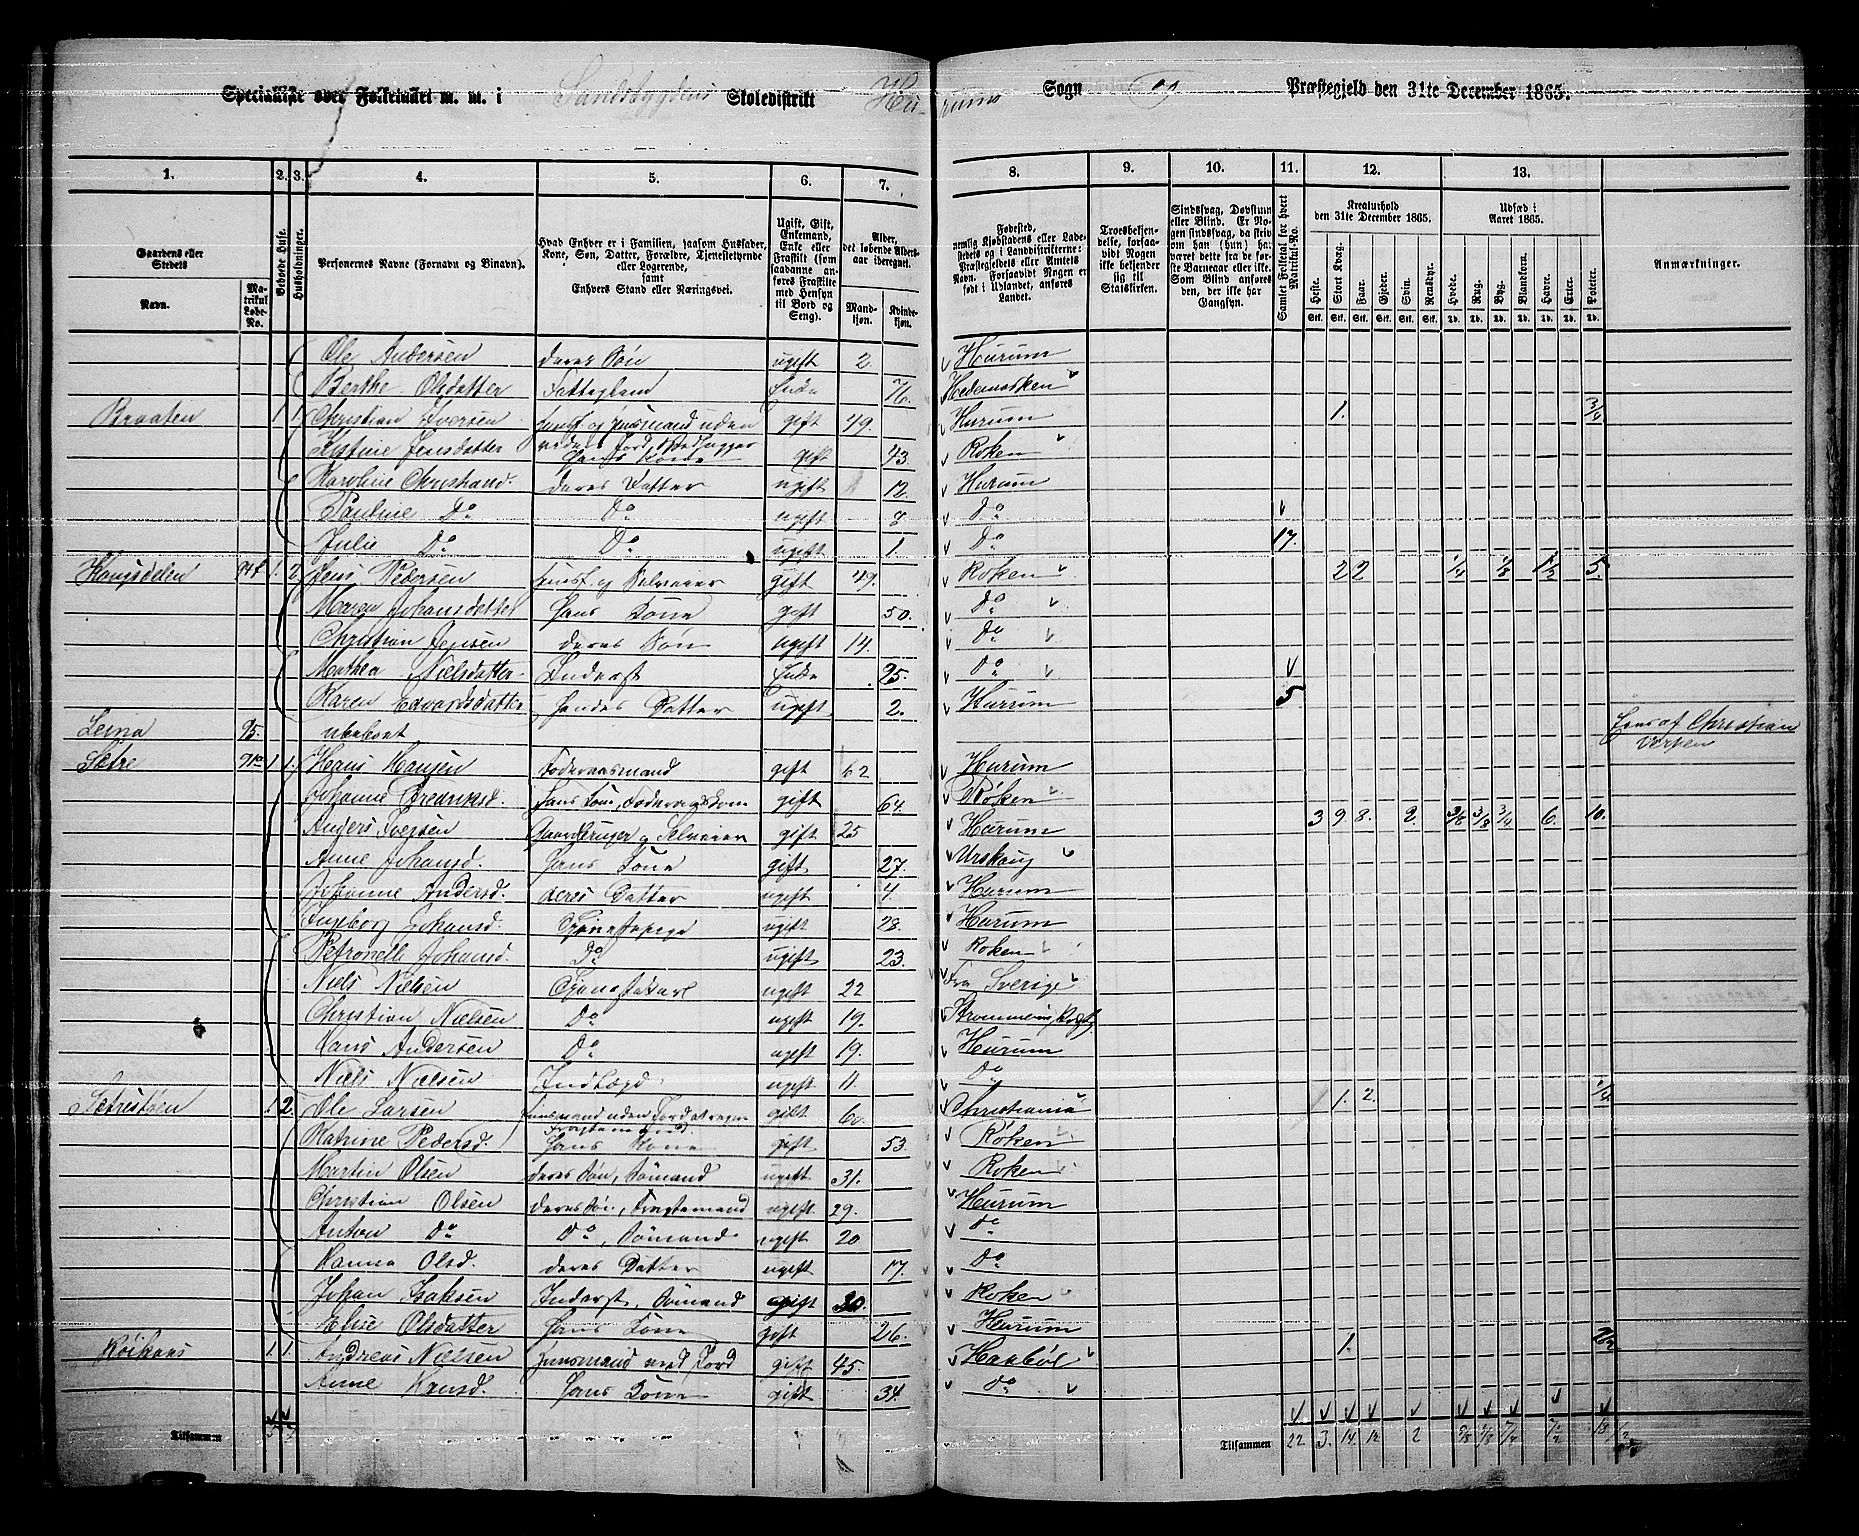 Specialliste over Folketallet m. m. i Sandsbygdens Skoledistrikt Hurums Sogn og Præstegjeld den 31te December 1865.
1. 2. 3. 4. 5. 6. 7. 8. 9. 10. 11. 12. 13.
Gaardens eller Stedets Navn. Matrikul Løbe-No. Beboede Huse. Husholdninger. Personernes Navne (Fornavn og Binavn).
Hvad Enhver er i Familien, saasom Husfader, Kone, Søn, Datter, Forældre, Tjenestetyende eller Logerende, samt Enhvers Stand eller Næringsvei.
Ugift, Gift, Enkemand, Enke eller Fraskilt (som saadanne anføres Fraskilte med Hensyn til Bord og Seng).
Alder, det løbende Aldersaar iberegnet. Mandkjøn. Kvindekjøn.
Fødested, nemlig Kjøbstadens eller Ladestedets og i Landdistrikterne: Præstegjeldets eller Amtets Navn. Forsaavidt Nogen er født i Udlandet, anføres Landet.
Troesbekjendelse, forsaavidt Nogen ikke bekjender sig til Statskirken.
Sindssvag, Døvstum eller Blind. Er Nogen sindssvag, da skrives om han (hun) har været dette fra de første Barneaar eller ikke. Som Blind anføres den, der ikke har Gangsyn.
Samlet Folketal for hvert Matrikul-No.
Kreaturhold den 31te December 1865. Heste. Stort Kvæg. Faar. Gjeder. Svin. Rensdyr.
Udsæd i Aaret 1865. Hvede. Rug. Byg. Blandkorn. Havre. Erter. Poteter.
Anmærkninger.
Ole Andersen deres Søn ugift 2 Hurum
Berthe Olsdatter Fattiglem Enke 76. Hedemarken
Braaten 1. 1. Christian Iversen gift 49. Hurum 1. 3/4
Kistine Jensdatter Hans Kone gift 43. Røken
Karoline Christiansd. deres Datter ugift 12. Hurum
Pauline Do Do ugift 8 Do
Julie Do Do ugift 1. Do 17.
1. 2. Jens Pedersen Husf. og Selveier gift 49. Røken 2 2 1/4 1/8 1 1/2 5.
Maren Johansdatter Hans Kone gift 50. Do
Christian Jensen deres Søn ugift 14. Do
Marthea Nielsdatter Inderst Enke 25. Do
Karen Edvardsdatter Hendes Datter ugift 2. Hurum 5
Lerna 95. ubeboet Christian
Sætre 1. 1. Hans Hansen Foderaadsmand gift 62 Hurum
Johanne Fredriksd. Hans Kone, gift 64. Røken
Anders Iversen Gaardbruger og Selveier gift 25 Hurum 3 9. 8. 2. 3/8 3/8 3/4 6. 10.
Anne Johansd. Hans Kone gift 27. Urskoug
Johanne Andersd. deres Datter ugift 4. Hurum
Ingeborg Johansd. Tjenestepige ugift 28. Hurum
Petronelle Johansd. Do ugift 23. Røken
Niels Nielsen Tjenestekarl ugift 22 Fra Sverige
Christian Nielsen Do ugift 19.
Hans Andersen Do ugift 19. Hurum
Niels Nielsen Indlagd ugift 11. Do
Sætrestøen 1 2. Ole Larsen Huusmand uden Jord gift 60 Christiania 1. 2. 1/4
Katrine Pedersd. Hans Kone gift 53. Røken
Martin Olsen deres Søn, Sømand ugift 31. Røken
Christian Olsen deres Søn, Fragtemand ugift 29. Hurum
Anton Do Do, Sømand ugift 20 Do
Hanna Olsd. deres Datter ugift 17. Do
Johan Isaksen Inderst, Sømand gift 30. Røken
Elise Olsdatter Hans Kone gift 26. Hurum
1. 1. Andreas Nielsen Huusmand med Jord gift 45. Haabøl 1.
Anne Hansd. Hans Kone gift 34. Do
Tilsammen 5 7 Tilsammen 22 3. 14. 12 2 18